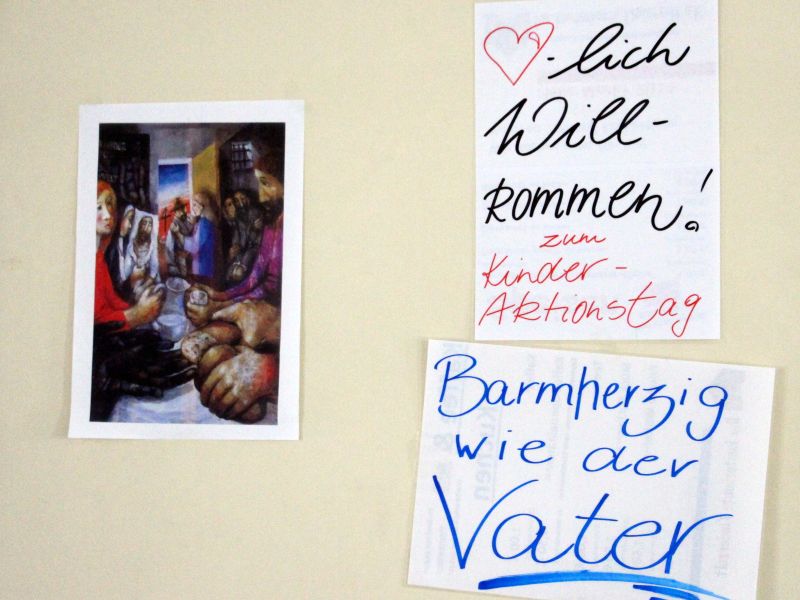 ♡-lich
Will-
kommen!
zum
Kinder-
Aktionstag
Barmherzig
wie der
Vater